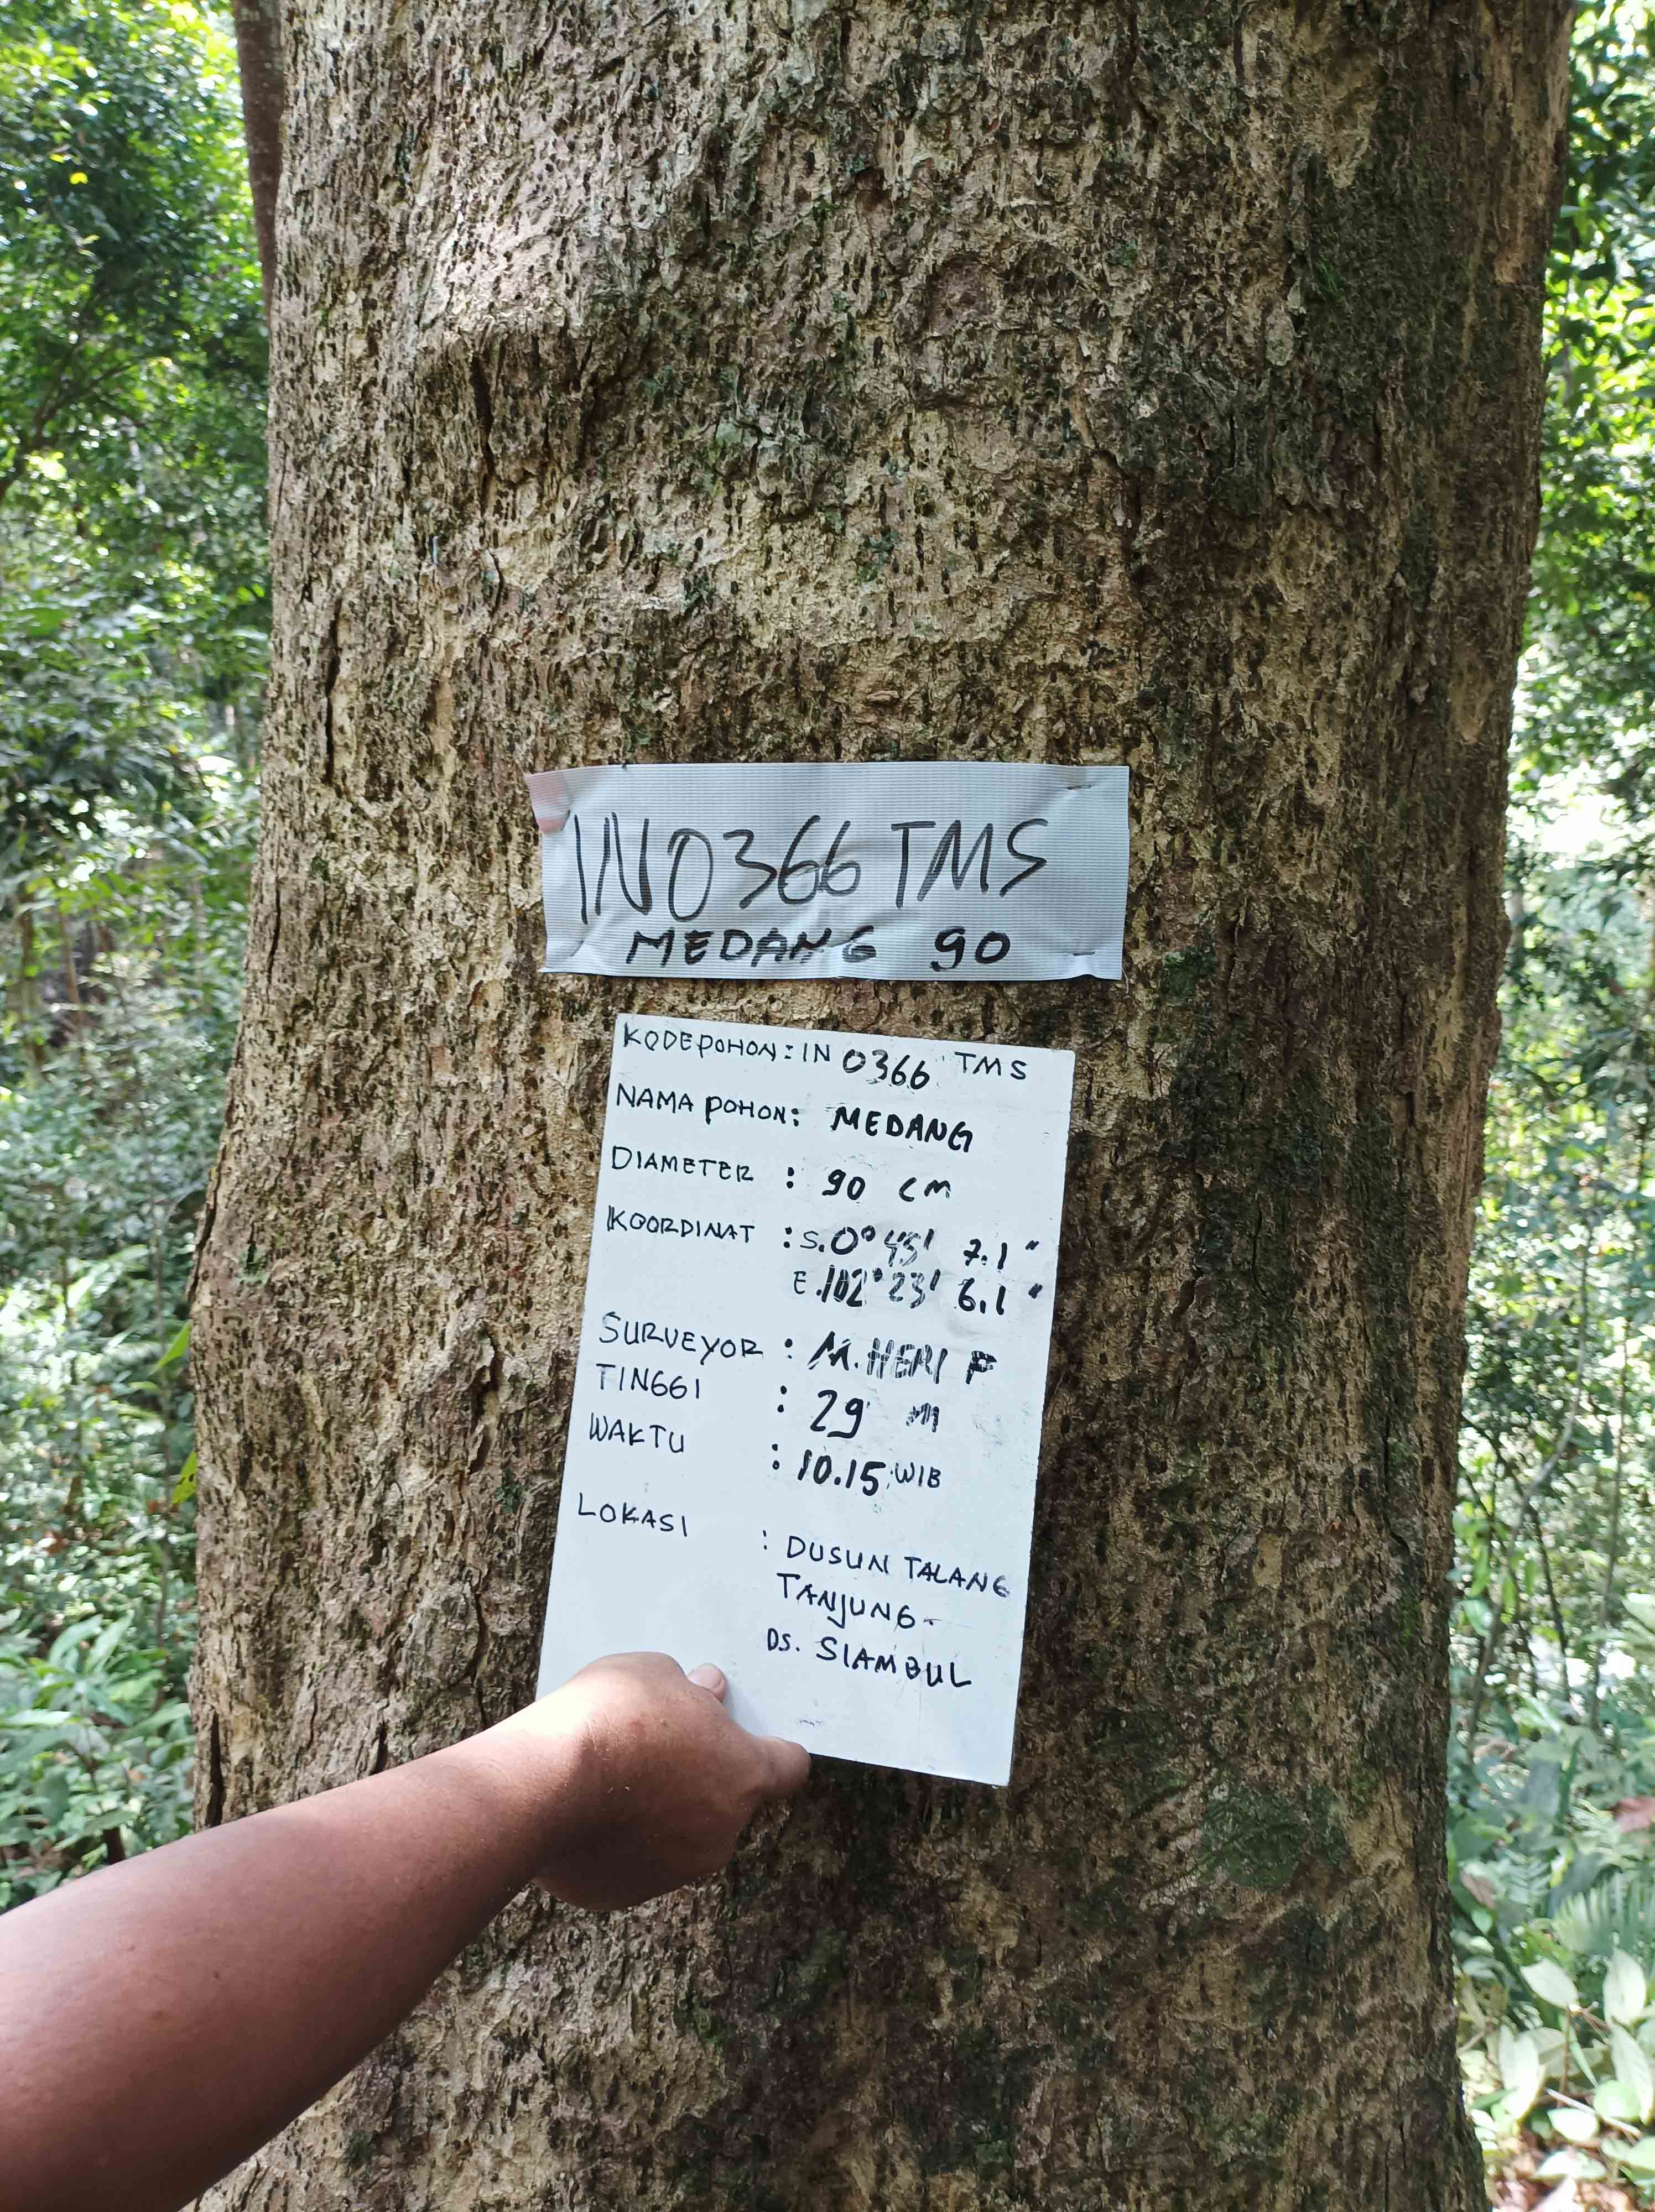 IN0366 TMS
MEDANG 90
KODE POHON: IN 0366 TMS
NAMA POHON: MEDANG
DIAMETER : 90 CM
KOORDINAT : S. 0° 45' 7.1"
E. 102° 23' 6.1"
SURVEYOR : M. HERI F
TINGGI : 29 M
WAKTU : 10.15 WIB
LOKASI : DUSUN TALANG
TANJUNG-
DS. SIAMBUL